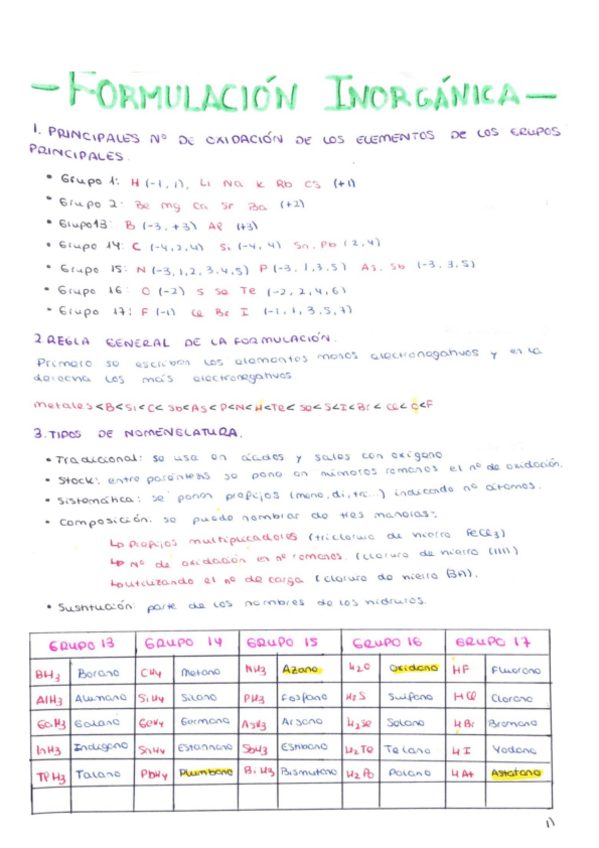 - FORMULACIÓN INORGÁNICA -
1. PRINCIPALES Nº DE OXIDACIÓN DE LOS ELEMENTOS DE LOS GRUPOS
PRINCIPALES.
• Grupo 1: H (-1, 1), Li Na K Rb Cs (+1)
• Grupo 2: Be Mg Ca Sr Ba (+2)
• Grupo 13: B (-3, +3) Al (+3)
• Grupo 14: C (-4,2,4) Si (-4, 4) Sn, Pb (2,4)
• Grupo 15: N (-3,1,2,3,4,5) P (-3,1,3,5) As, Sb (-3,3,5)
• Grupo 16: O (-2) S Se Te (-2, 2,4,6)
• Grupo 17: F (-1) Cl Br I (-1, 1, 3, 5, 7)
2. REGLA GENERAL DE LA FORMULACIÓN.
Primero se escriben los elementos menos electronegativos y en la
derecha los más electronegativos.
metales<B<Si<C<Sb<As<P<N<H<Te<Se<S<I<Br<Cl<O<F
3. TIPOS DE NOMENCLATURA.
• Tradicional: se usa en ácidos y sales con oxígeno
• Stock: entre paréntesis se pone en números romanos el nº de oxidación.
• Sistemática: se ponen prefijos (mono, di, tri...) indicando nº átomos.
• Composición: se puede nombrar de tres maneras:
↳ Prefijos multiplicadores (tricloruro de hierro FeCl3)
↳ Nº de oxidación en nº romanos. (cloruro de hierro (III))
↳ utilizando el nº de carga (cloruro de hierro (3+)).
• Sustitución: parte de los nombres de los hidruros.
GRUPO 13 GRUPO 14 GRUPO 15 GRUPO 16 GRUPO 17
BH3 Borano CH4 Metano NH3 Azano H2O Oxidano HF Fluorano
AlH3 Alumano SiH4 Silano PH3 Fosfano H2S Sulfano HCl Clorano
GaH3 Galano GeH4 Germano AsH3 Arsano H2Se Selano HBr Bromano
InH3 Indigano SnH4 Estannano SbH3 Estibano H2Te Telano HI Yodano
TlH3 Talano PbH4 Plumbano BiH3 Bismutano H2Po Polano HAt Astatano
1)